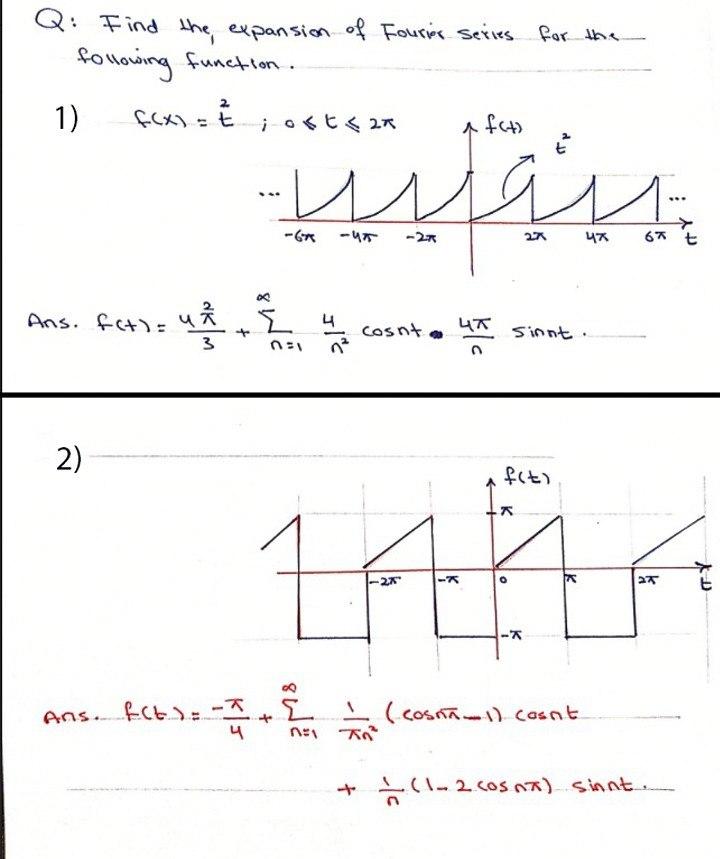 Q: Find the expansion of Fourier series for the
following function.
1) f(x) = t² ; 0 ≤ t ≤ 2π
f(t)
t²
... ...
-6π -4π -2π 2π 4π 6π t
Ans. f(t) = 4π²/3 + ∞Σn=1 4/n² cosnt - 4π/n sinnt.
2)
f(t)
π
-2π -π 0 π 2π t
-π
Ans. f(t) = -π/4 + ∞Σn=1 1/πn² (cosnπ-1) cosnt
+ 1/n (1-2cosnπ) sinnt.